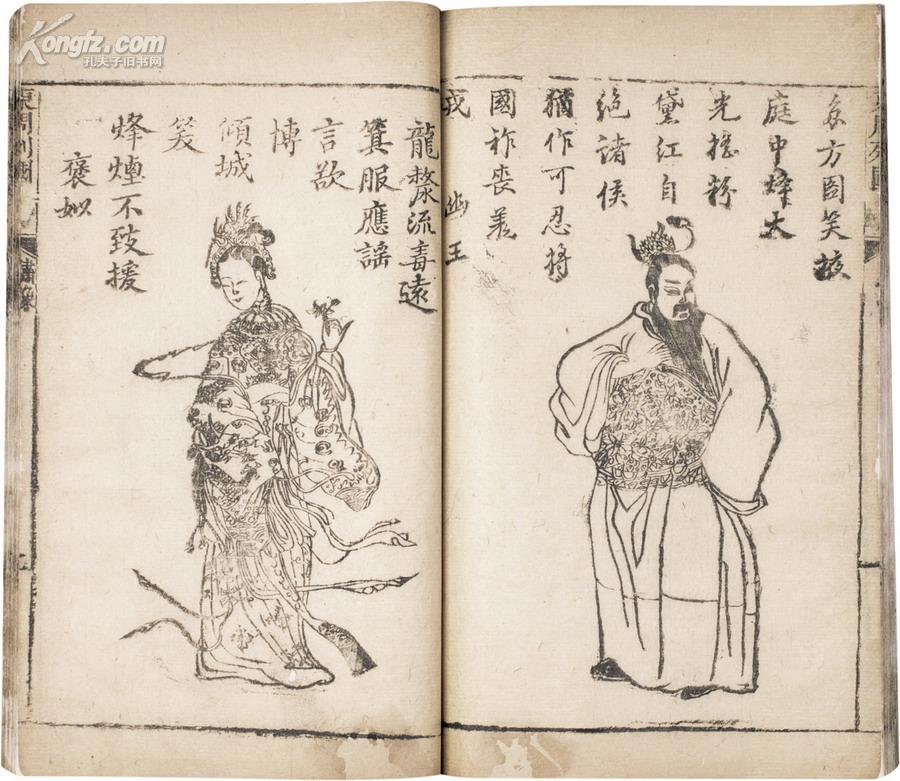 Kongfz.com
孔夫子旧书网
方圖笑
庭中烽火
光搖粉
黛红自
絕諸侯
猶作可忍將
國祚喪羌
戎
幽王
龍漦流毒遠
箕服應謠
言欲
博
傾城
笑
烽煙不致援
褒姒
東周列國
繡像